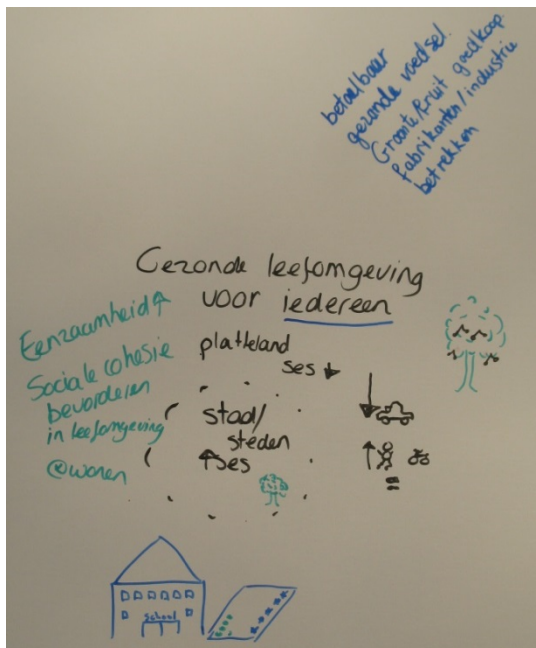 betaalbaar
gezonde voedsel.
Groente/fruit goedkoop
fabrikanten/industrie
betrekken
Gezonde leefomgeving
voor iedereen
Eenzaamheid↑
Sociale cohesie
bevorderen
in leefomgeving
@wonen
platteland
ses ↓
stad/
steden
↑ses
school